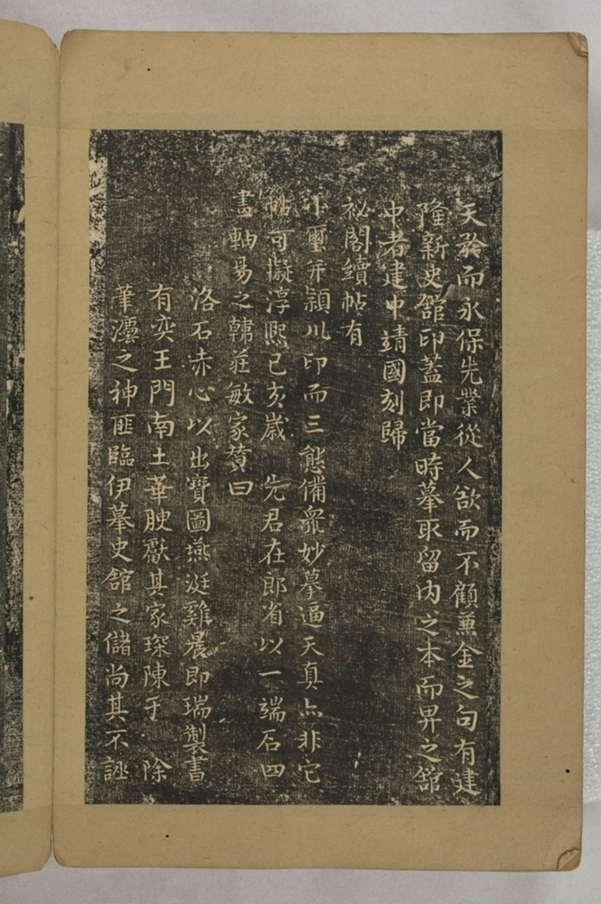 天發而永保先業從人欲而不顧薫金之句有建
隆新史舘印蓋即當時摹取留内之本而畀之舘
中者建中靖國刻歸
祕閣續帖有
小璽并潁川印而三態備衆妙摹逼天真亦非它
帖可擬淳熙己亥歲 先君在郎省以一端石四
畫軸易之韓莊敏家贊曰
洛石赤心以出寶圖燕涎雞晨即瑞製書
有奕王門南土華腴厭其家琛陳于 除
筆瀍之神匪臨伊摹史舘之儲尚其不誣